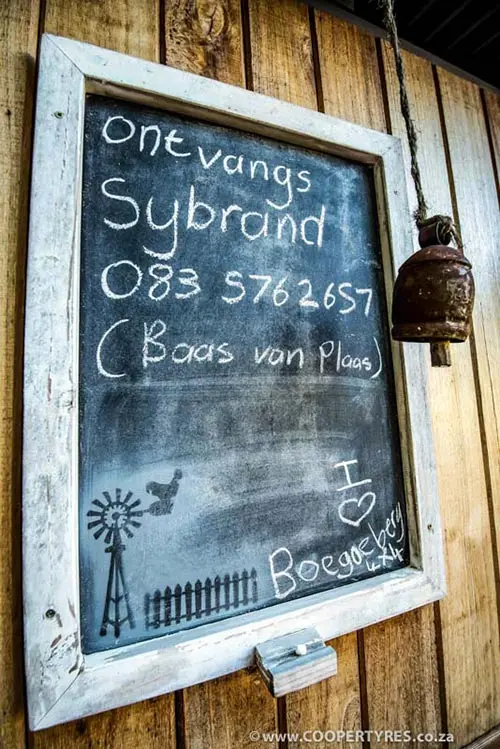 ontvangs
Sybrand
083 5762657
(Baas van Plaas)
I
♡
Boegoeberg
4x4
©www.COOPERTYRES.co.za